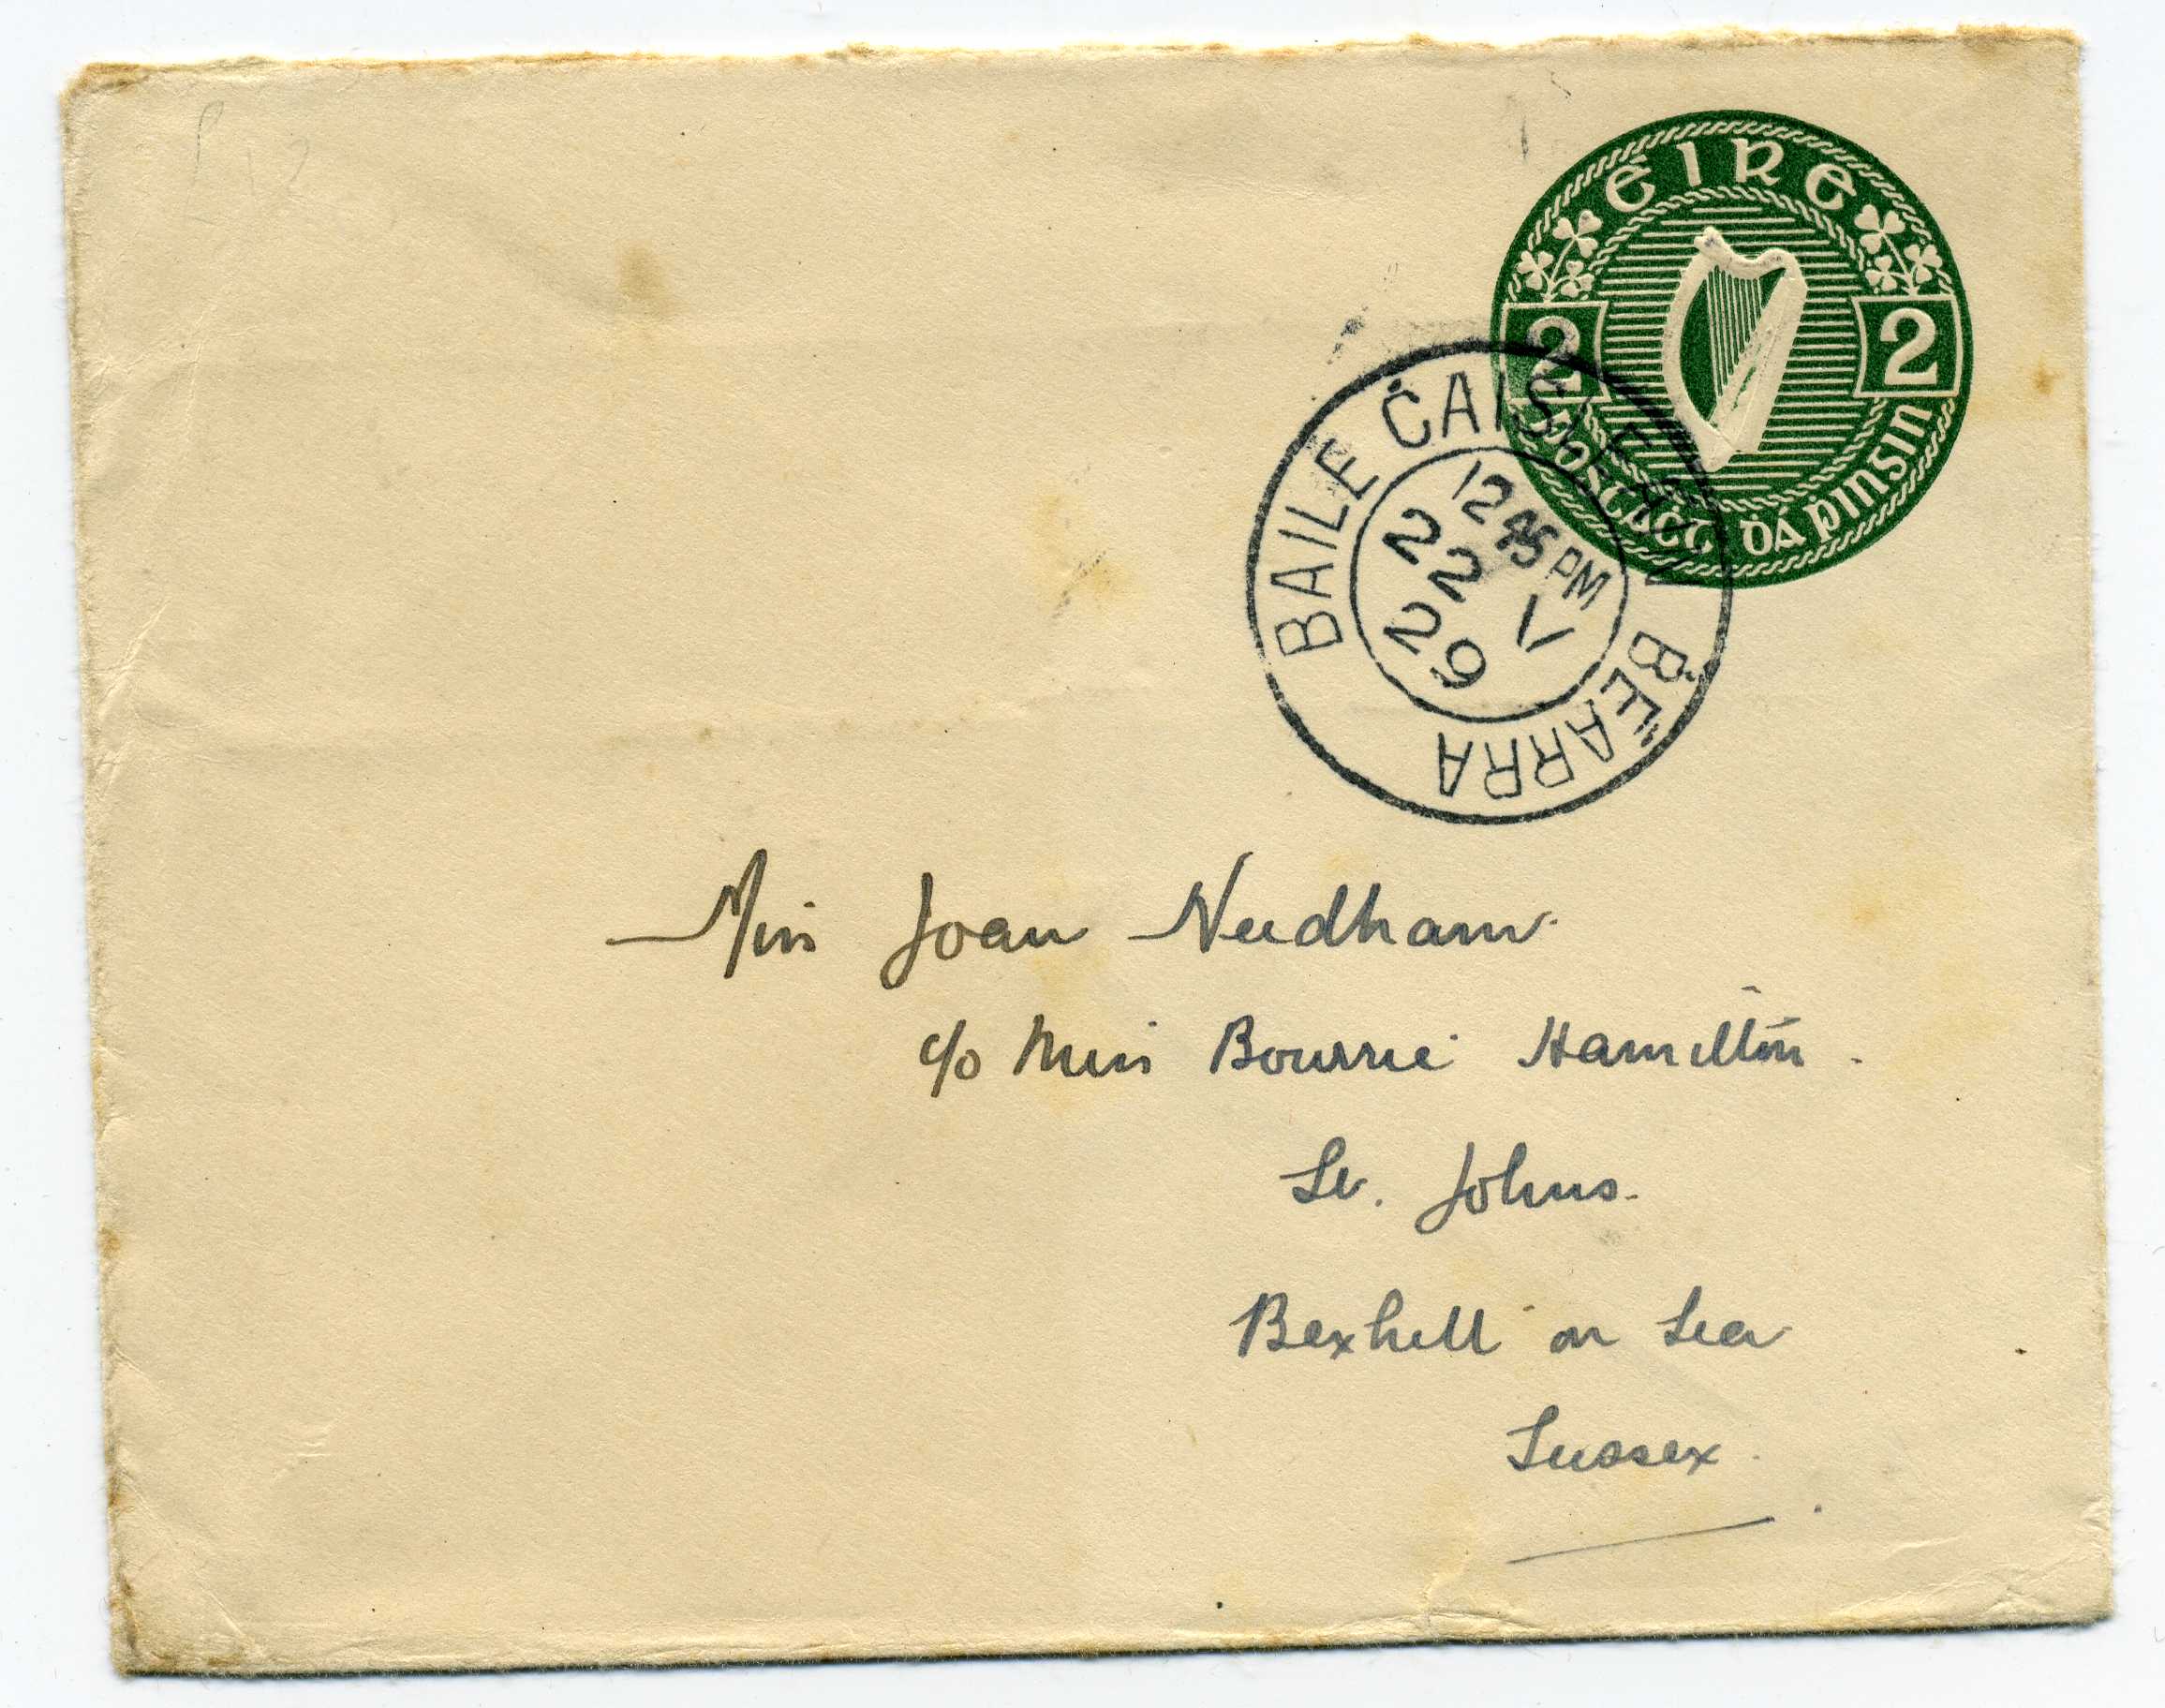 ÉIRE
2 2
POSTAĊT DÁ ṖINSIN
BAILE ĊAISLEÁIN ḂÉARRA
12 45 PM
22 V
29
Miss Joan Needham.
c/o Miss Bourrie Hamilton.
St. Johns.
Bexhill on Sea
Sussex.